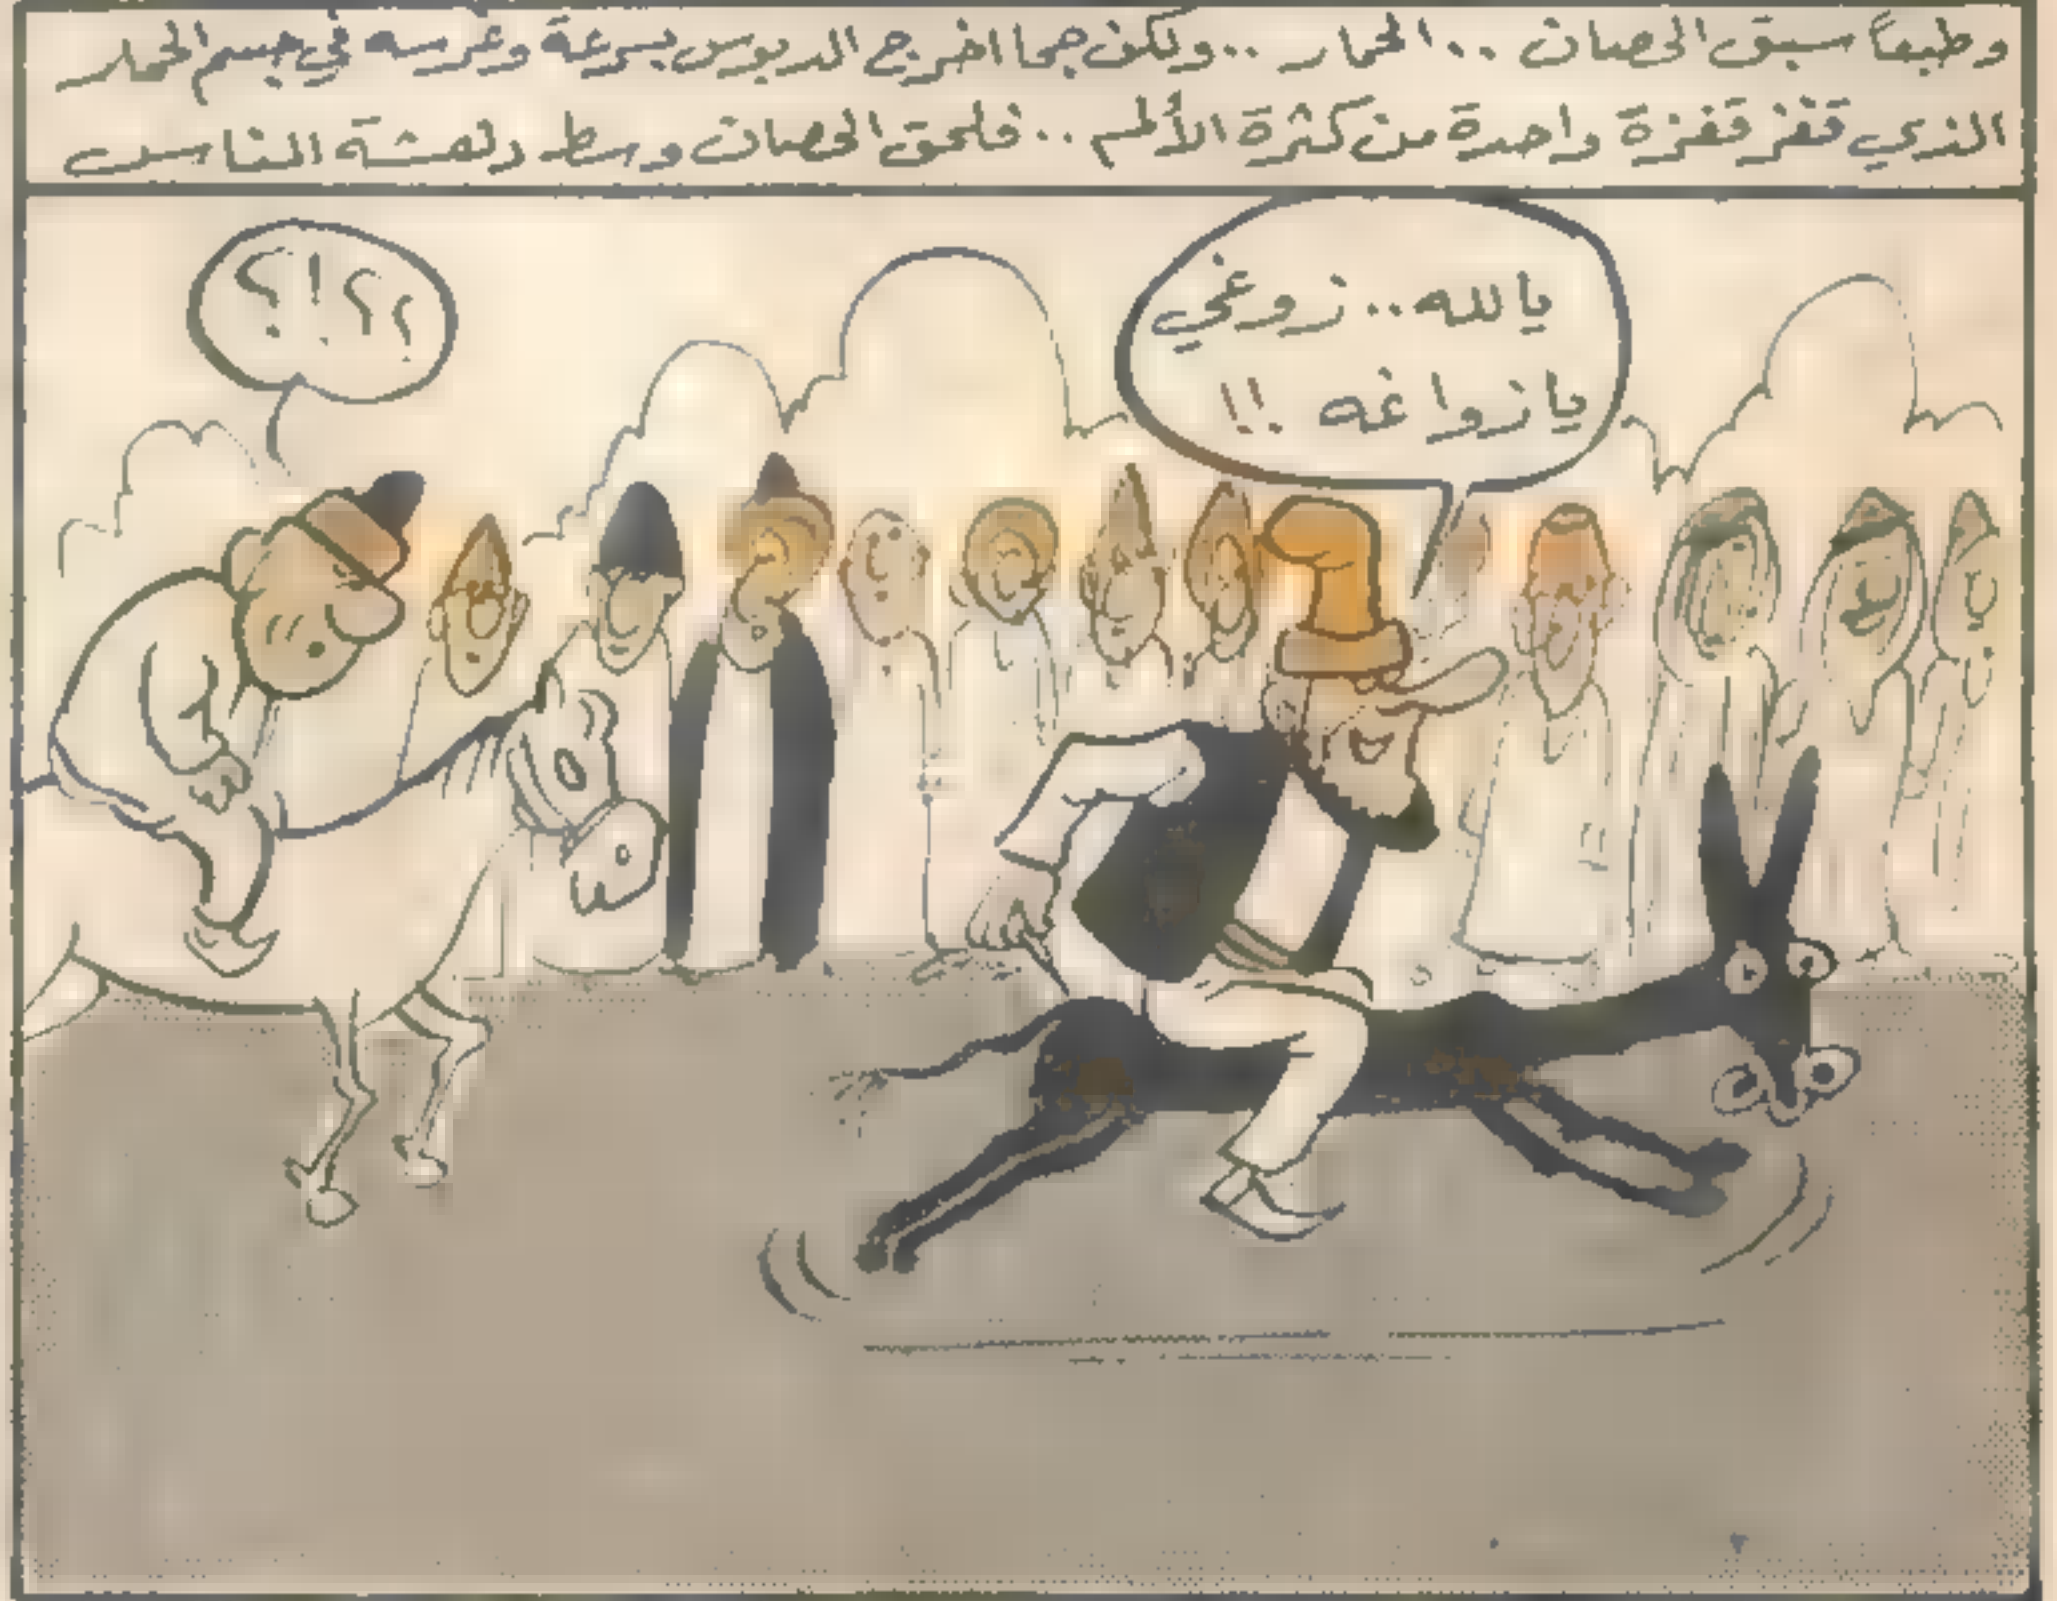 وطبعاً سبق الحصان .. الحمار .. ولكن جحا اخرج الدبوس بسرعة وغرسه في جسم الحمار
الذي قفز قفزة واحدة من كثرة الألم .. فلحق الحصان وسط دهشة الناس
يالله.. زوغي
يا زواغه !!
؟؟!؟